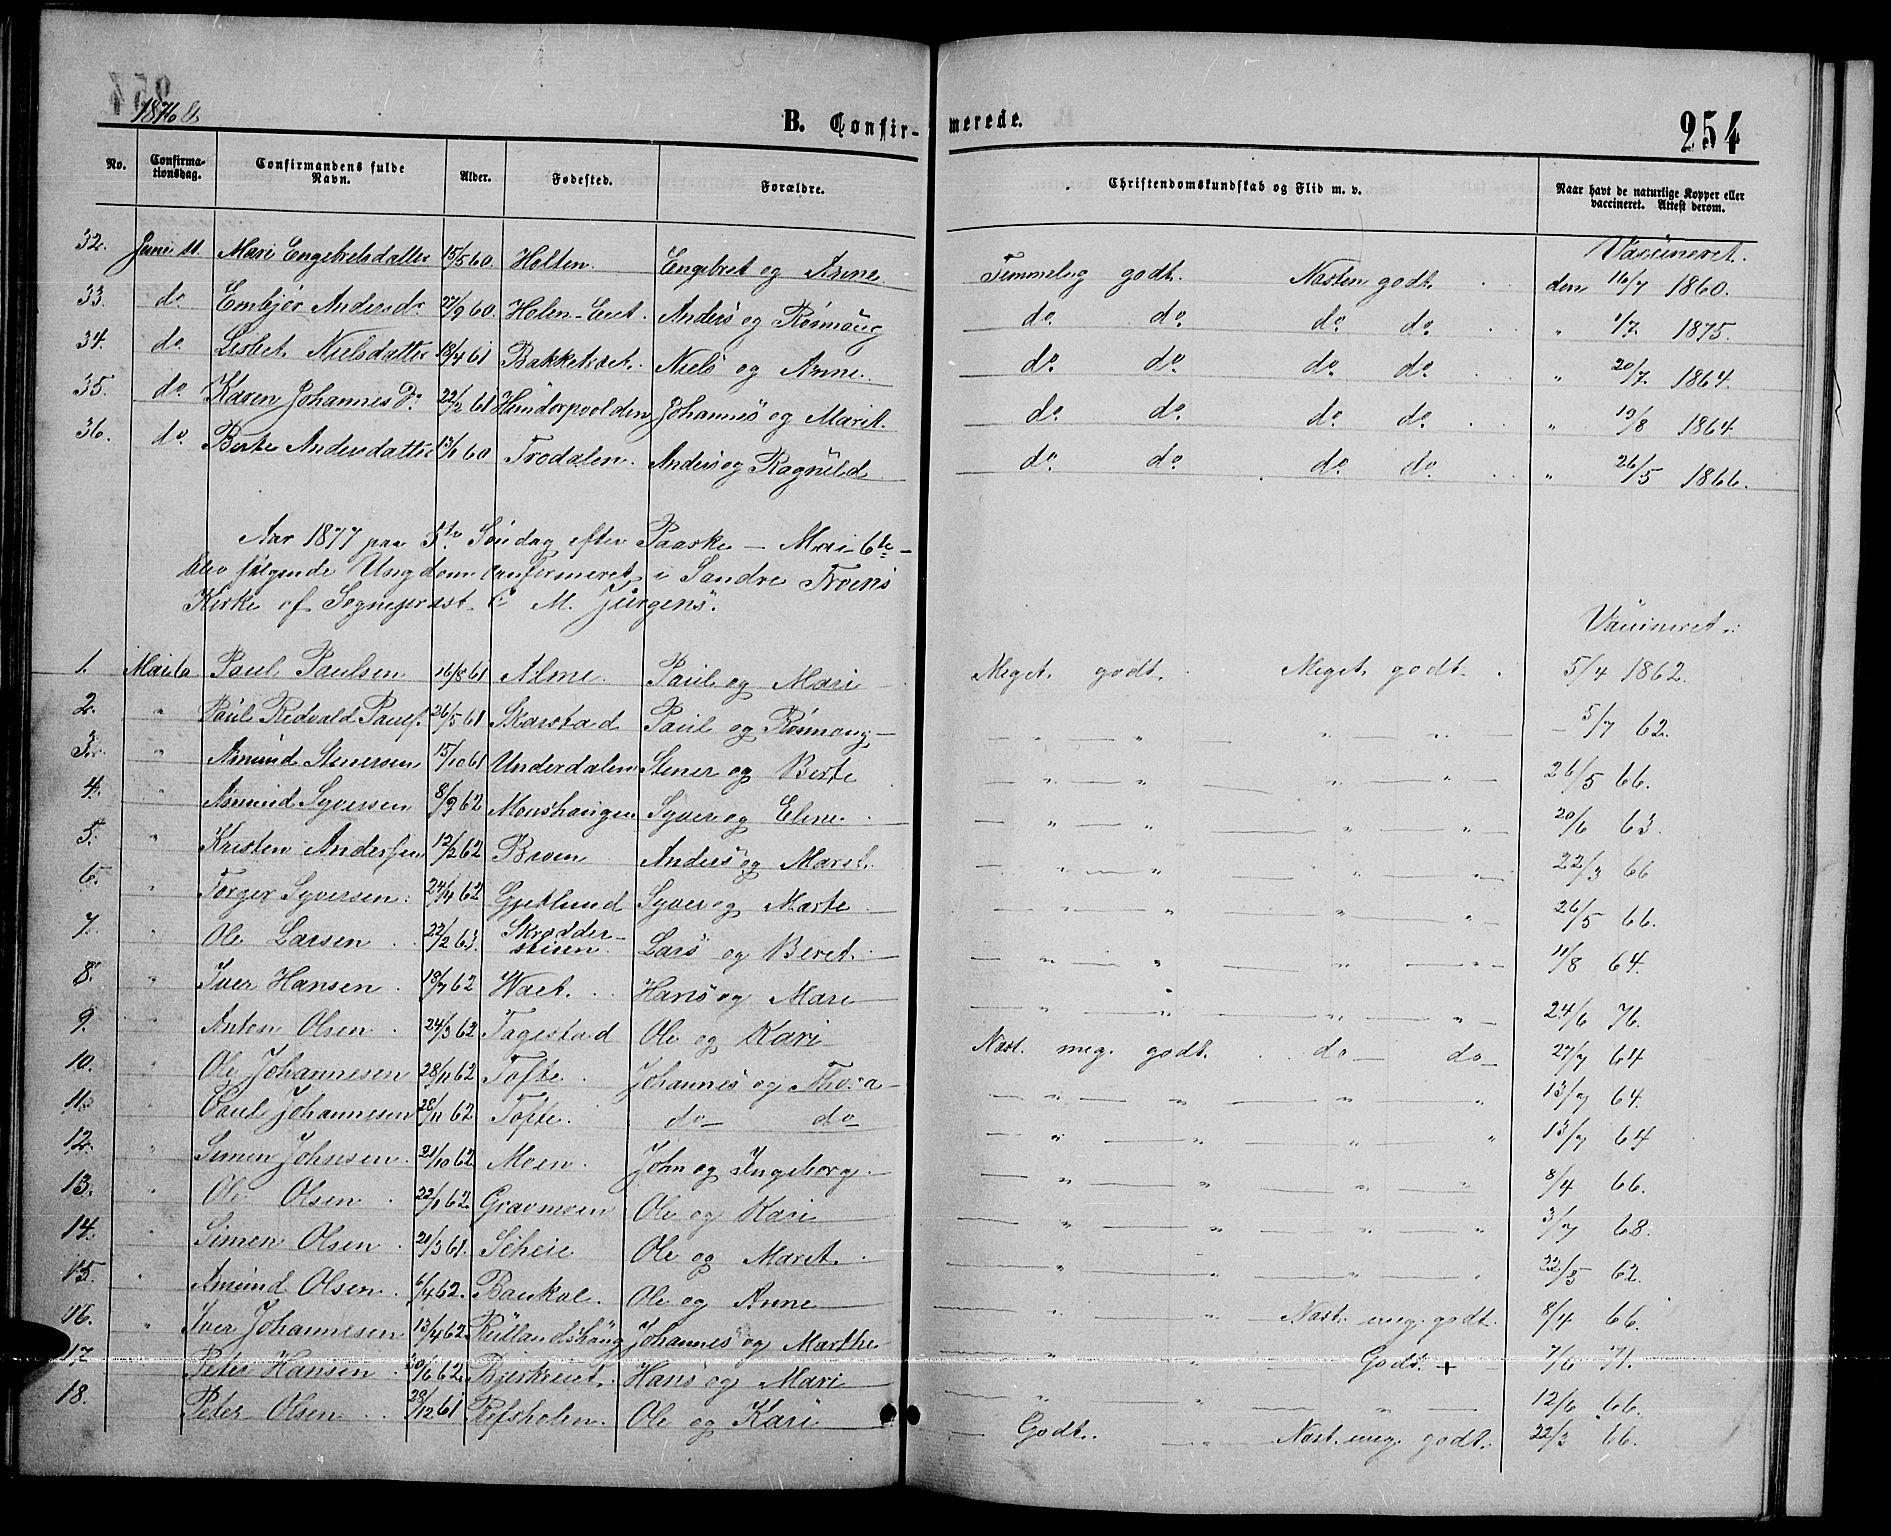 1876
B. Confir- merede.
254
No. Confirmationsdag. Confirmandens fulde Navn. Alder. Fødested. Forældre. Christendomskundskab og Flid m. v. Naar havt de naturlige Kopper eller vaccineret. Attest derom.
Vaccineret.
32. Juni 11. Mari Engebretsdatter 15/5 60. Holten. Engebret og Anne. Temmelig godt. Næsten godt. den 16/7 1860.
33. do Embjør Andersdr 27/9 60. Holen-Eiet. Anders og Rønnaug do. do. do. do. " 1/7 1875.
34. do Lisbet Nielsdatter 18/4 61 Niels og Anne. do do do. do. " 20/7. 1864.
35. do. Karen Johannes Dr 22/2 61 Johannes og Marit. do. do. do. do. " 19/8 1864.
36. do. Berte Andersdatter 13/1 60 Trodalen. Anders og Ragnild do. do. do. do. " 26/5 1866.
Aar 1877 paa 5te Søndag efter Paaske - Mai 6te -
blev følgende Ungdom confirmeret i Søndre Froens
Kirke af Sognepræst C M. Jürgens.
Vaccineret.
1. Mai 6 Paul Paulsen 16/8 61 Alme. Paul og Mari Meget godt. Meget godt. 5/4 1862.
2. " Paul Redvald Pauls. 26/5 61 Skarstad Paul og Rønnaug - " " " " 5/7 62.
3. " Amund Stenersen 15/10 61 Underdalen Stener og Berte " " " " 26/5 66.
4. " Amund Syversen 8/3 62 Monshaugen Syver og Eline. " " " " 20/6 63.
5. " Kristen Andersen 12/2 62 Broen Anders og Marit. " " " " 22/3 66
6. " Torger Syversen. 24/4 62 Gjetlund Syver og Marte. " " " " 26/5 66.
7. " Ole Larsen 22/2 63. Skrædderstuen. Lars og Beret. " " " " 11/8 64.
8. " Iver Hansen 18/7 62 Hans og Mari " " " " 24/6 76.
9. " Anton Olsen 24/3 62 Tagestad Ole og Kari Næst. meg. godt. do - do - 27/7 64
10. " Ole Johannesen 28/11 62 Tofte. Johannes og Thora " " " " 13/7 64.
11. " Paul Johannesen 28/11 62 Tofte. do do " " " " 13/7 64
12. " Simen Johnsen. 21/10 62 Moen. John og Ingeborg. " " " " 8/4 66.
13. " Ole Olsen 22/1 62. Gravmoen Ole og Kari " " " " 3/7 68.
14. " Simen Olsen 21/3 61. Scheie Ole og Maret. " " " " 22/5 62.
15. " Amund Olsen. 6/4 62. Baukol. Ole og Anne " " Næst. meg. godt. 8/4 66.
16. " Iver Johannesen 13/4 62 Rutlandshaug Johannes og Marthe " " Godt. + 7/6 71.
17. Peter Hansen 20/6 62 Hans og Mari " " " " 12/6 66.
18. Peter Olsen 28/12 61 Refsholen. Ole og Kari Godt. " Næst. meg. godt. 22/3 66.